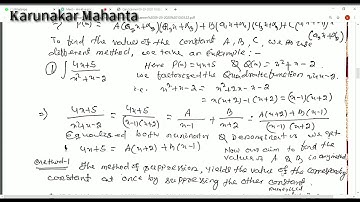 Karunakar Mahanta
To find the value of the constant A, B, C, we as use
different method, we take an example :-
① ∫ 4x+5 / x²+x-2 Here P(x) = 4x+5 & Q(x) = x²+x-2
we factorised the Quadratic function x²+x-2
i.e. x²+x-2 = x²+2x-x-2
= x(x+2)-1(x+2) = (x-1)(x+2)
⇒ 4x+5 / x²+x-2 = 4x+5 / (x-1)(x+2) = A / x-1 + B / x+2 = A(x+2)+B(x-1) / (x-1)(x+2)
both numerator & Denominator we get
4x+5 = A(x+2) + B(x-1) Now our aim to find the
value of A & B
Method-1 The method of suppression, yields the value of the
constant at once by suppressing the other constant.